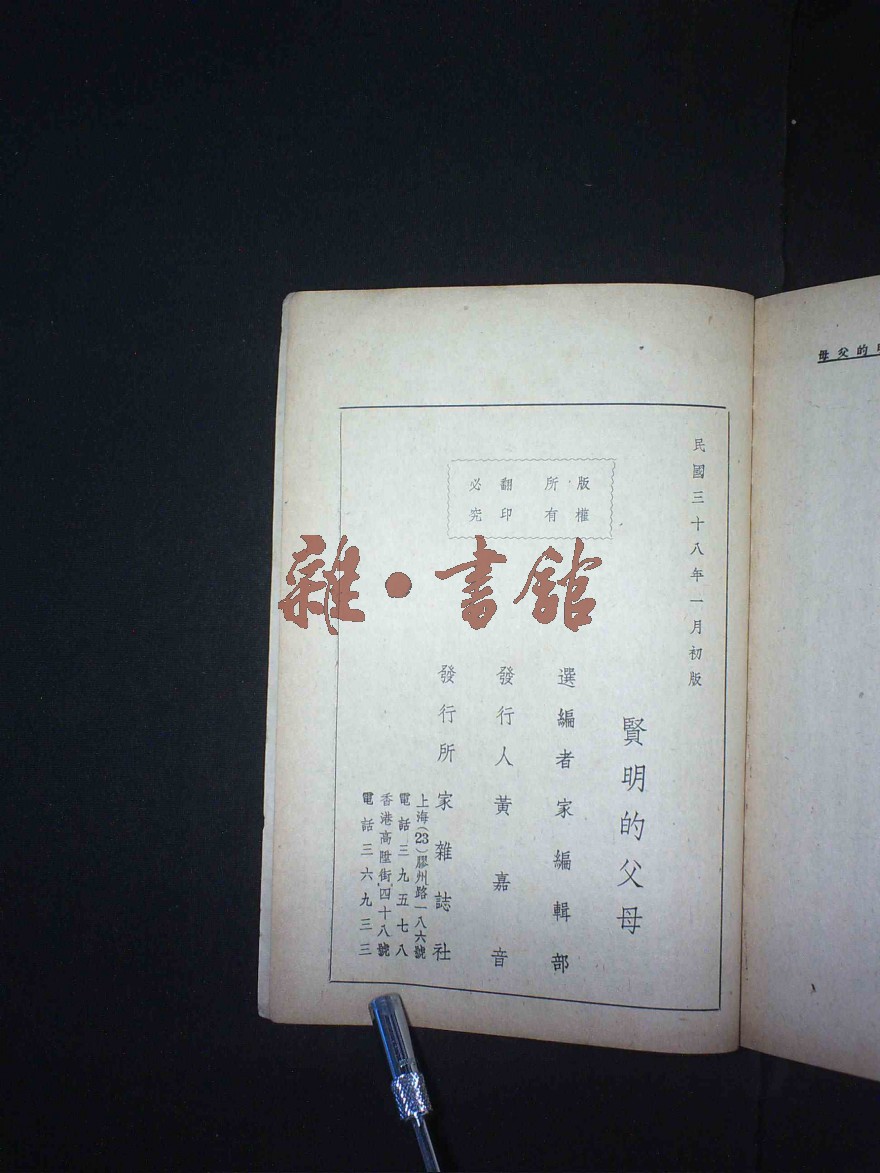 民國三十八年一月初版
賢明的父母
版權所有
翻印必究
選編者家編輯部
發行人黃嘉音
發行所家雜誌社
上海(23)膠州路一八六號
電話三九五七八
香港高陞街四十八號
電話三六九三三
雜·書館
的父母